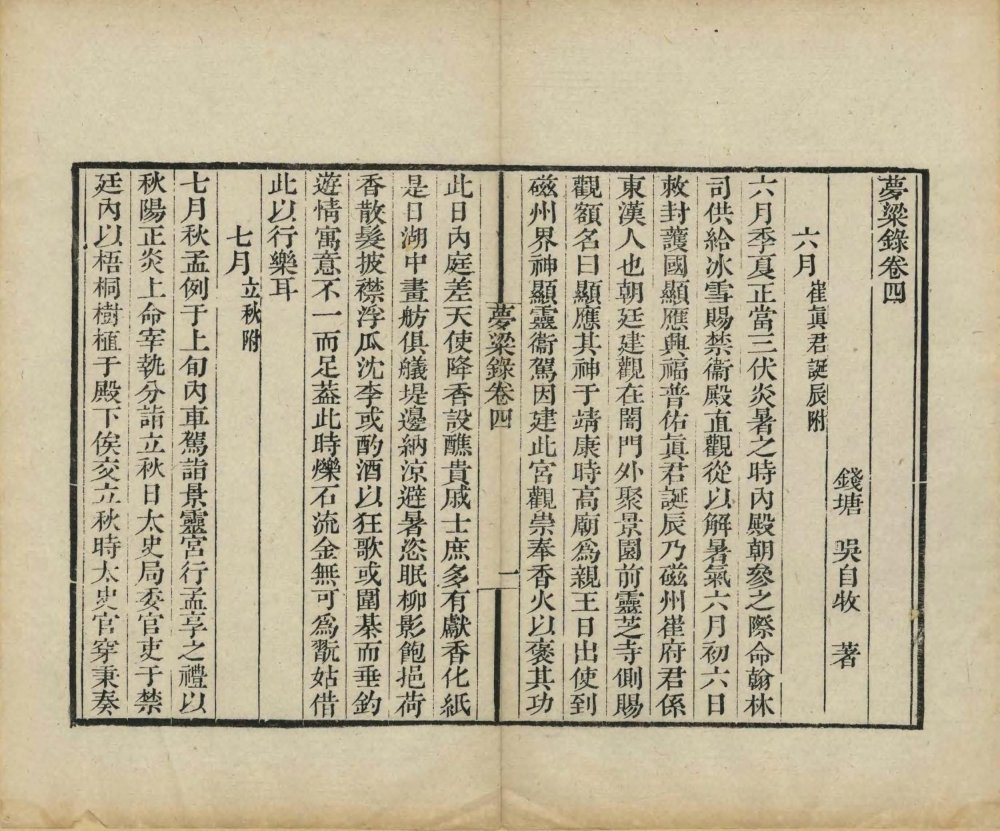 夢粱錄卷四
錢塘 吳自牧 著
六月 崔眞君誕辰附
六月季夏正當三伏炎暑之時內殿朝參之際命翰林
司供給冰雪賜禁衞殿直觀從以解暑氣六月初六日
敕封護國顯應興福普佑眞君誕辰乃磁州崔府君係
東漢人也朝廷建觀在闇門外聚景園前靈芝寺側賜
觀額名曰顯應其神于靖康時高廟爲親王日出使到
磁州界神顯靈衞駕因建此宮觀崇奉香火以褒其功
夢粱錄卷四 一
此日內庭差天使降香設醮貴戚士庶多有獻香化紙
是日湖中畫舫俱艤堤邊納涼避暑恣眠柳影飽挹荷
香散髮披襟浮瓜沈李或酌酒以狂歌或圍棊而垂釣
遊情寓意不一而足葢此時爍石流金無可爲翫姑借
此以行樂耳
七月 立秋附
七月秋孟例于上旬內車駕詣景靈宮行孟享之禮以
秋陽正炎上命宰執分詣立秋日太史局委官吏于禁
廷內以梧桐樹植于殿下俟交立秋時太史官穿秉奏